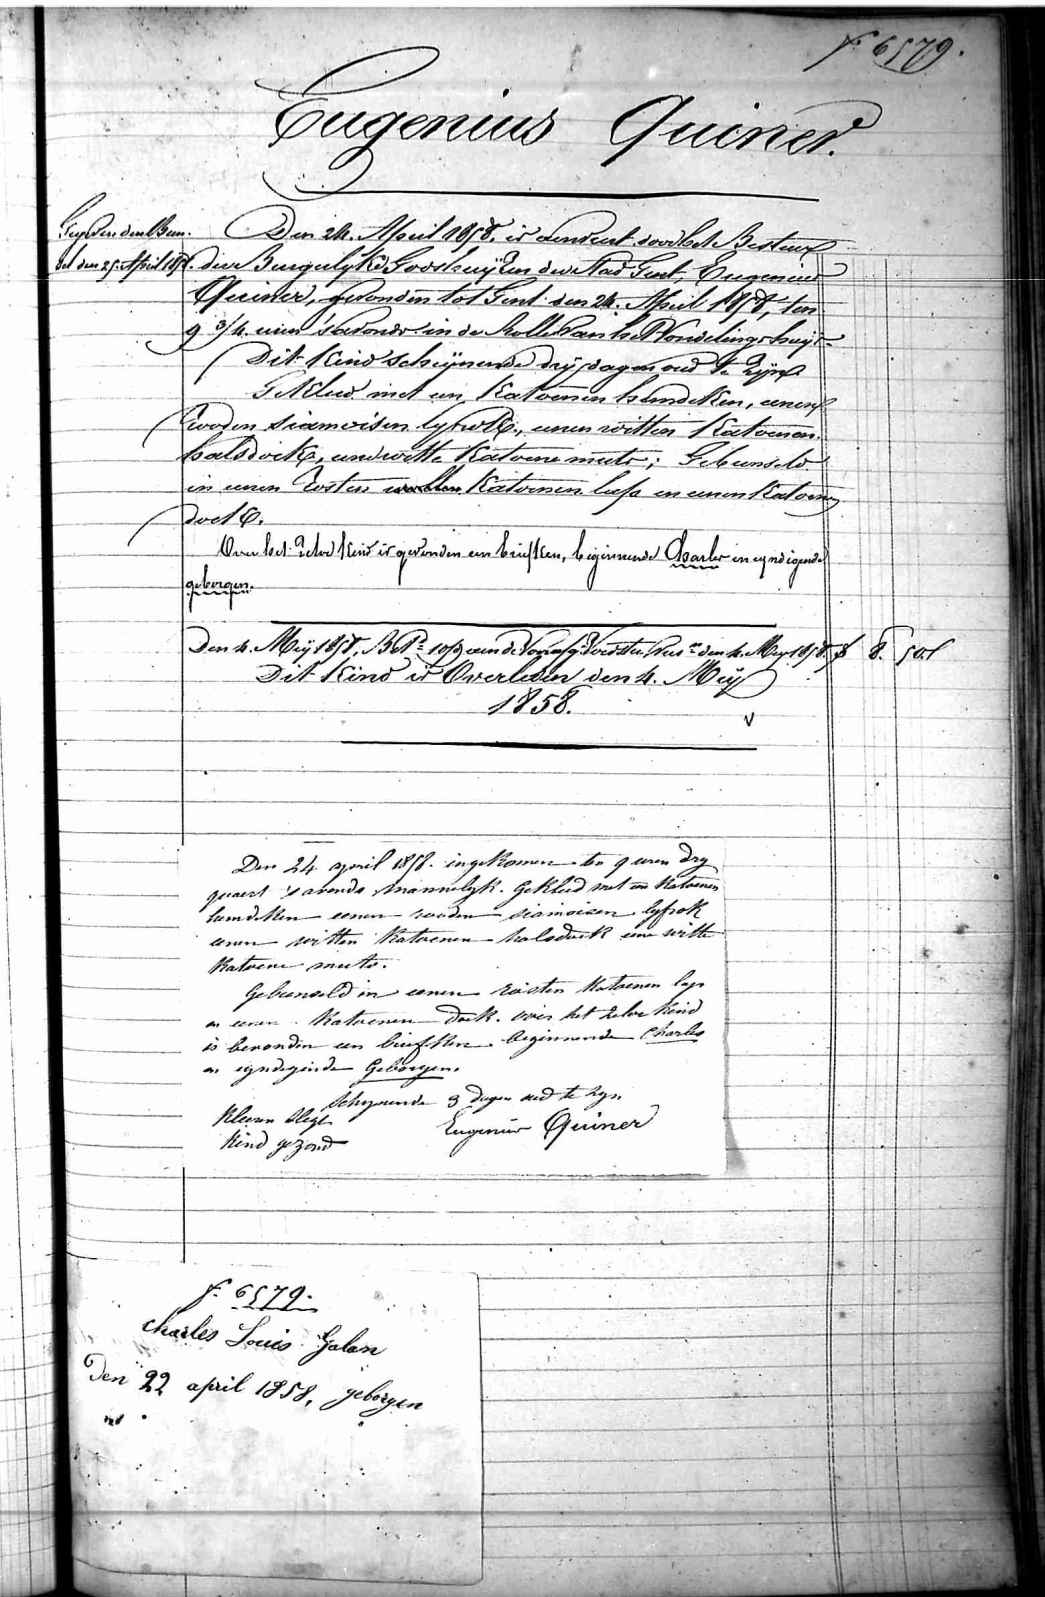 f° 6579.
Eugenius Quiner.
den 25 April 1858.
Den 24. April 1858, is aenveert door het Bestier
der Burgerlyke Godshuyzen der Stad Gent Eugenius
Quiner, gevonden tot Gent den 24. April 1858, ten
9 3/4 uren 's avonds in de Rolle van het Vondelingshuys.
Dit Kind schijnende dry dagen oud te zijn
Gekleed met een Katoenen hemdeken, eenen
rooden siamoisen lyfrok, eenen witten Katoenen
halsdoek, eene witte Katoene muts; Gebunseld
in eenen Katoenen laps en eenen Katoenen
doek.
Over het zelve Kind is gevonden een briefken, beginnende Charles en eyndigende
geborgen.
Den 4. Meÿ 1858, den 4. Mey 1858, f 8. 50
Dit Kind is Overleden den 4. Meÿ
1858.
Den 24 april 1858. ingekomen te 9 uren dry
quaert 's avonds mannelyk. Gekleed met een Katoenen
hemdeken eenen rooden siamoisen lyfrok
eenen witten Katoenen halsdoek eene witte
Katoene muts.
Gebunseld in eenen Katoenen laps
en eenen Katoenen doek. over het zelve Kind
is bevonden een briefken beginnende Charles
en eyndigende Geborgen.
Schynende 3 dagen oud te zyn
Kleeren slegt
Eugenius Quiner
Kind gezond
f° 6579.
Charles Louis Galan
Den 22 april 1858, geborgen